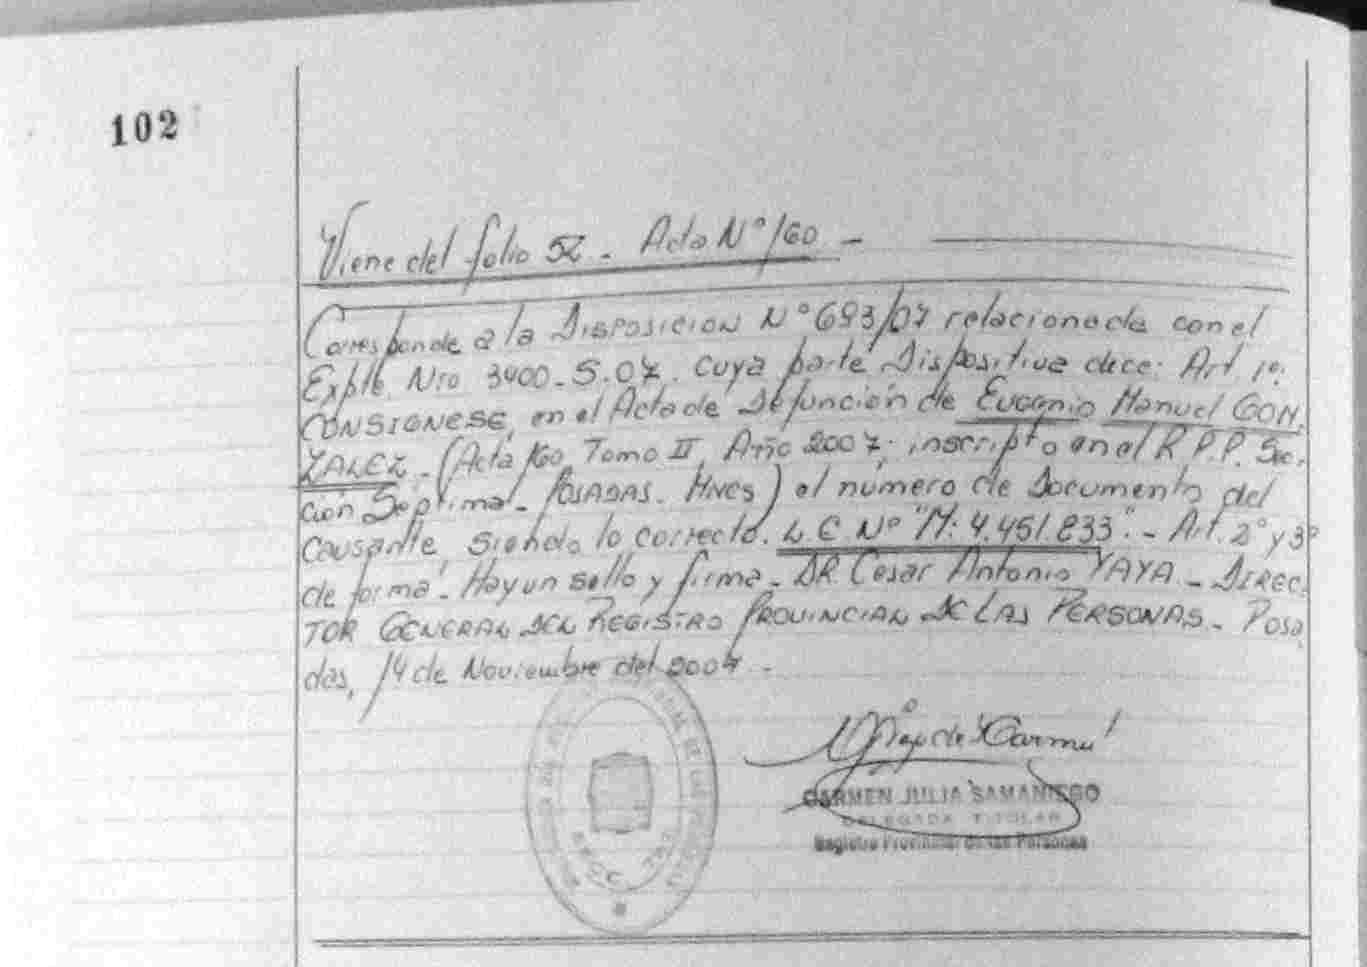 102
Viene del folio 52 - Acta Nº 160 -
Corresponde a la DISPOSICION Nº 693/07 relacionada con el
Expte. Nro 3400-S-07. cuya parte Dispositiva dice: Art. 1º:
CONSIGNESE, en el Acta de Defunción de Eugenio Manuel GON
ZALEZ - (Acta 160 Tomo II Año 2007, inscripto en el R.P.P. Sec-
ción Séptima - POSADAS. Mnes) el número de Documento del
Causante, siendo lo correcto. L.E Nº "M. 4.451.833". - Art. 2º y 3º
de forma. Hay un sello y firma - DR. Cesar Antonio YAYA - DIREC
TOR GENERAL DEL REGISTRO PROVINCIAL DE LAS PERSONAS - Posa
das, 14 de Noviembre del 2007 -
CARMEN JULIA SAMANIEGO
DELEGADA TITULAR
Registro Provincial de las Personas